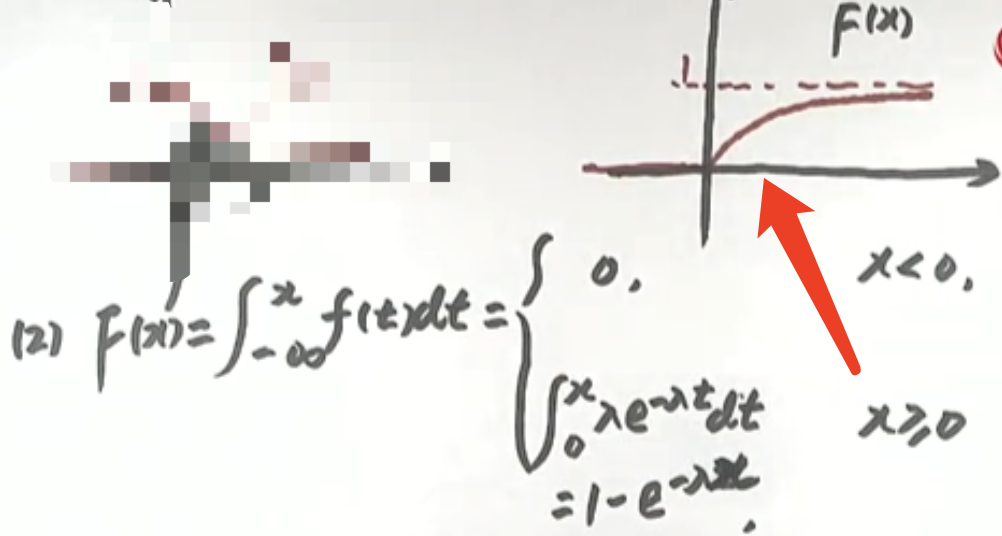 F(x)
1
(2) F(x)=∫_{-∞}^{x} f(t)dt = { 0, x<0,
∫_{0}^{x} λe^{-λt}dt x≥0
=1-e^{-λx}.